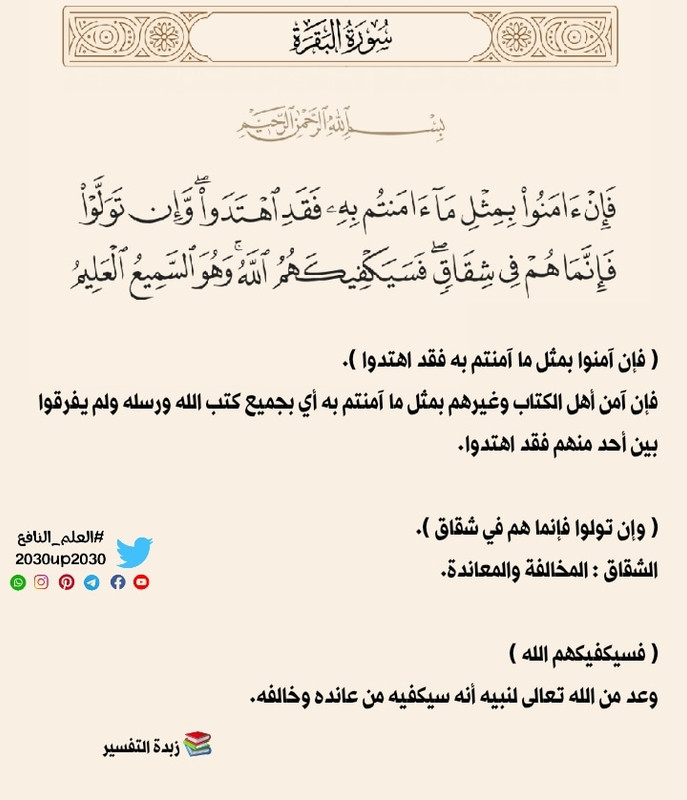 سُورَةُ البَقَرَةِ
بِسْمِ اللَّهِ الرَّحْمَٰنِ الرَّحِيمِ
فَإِنْ ءَامَنُوا۟ بِمِثْلِ مَآ ءَامَنتُم بِهِۦ فَقَدِ ٱهْتَدَوا۟ۖ وَّإِن تَوَلَّوْا۟
فَإِنَّمَا هُمْ فِى شِقَاقٍۖ فَسَيَكْفِيكَهُمُ ٱللَّهُۚ وَهُوَ ٱلسَّمِيعُ ٱلْعَلِيمُ
( فإن آمنوا بمثل ما آمنتم به فقد اهتدوا ).
فإن آمن أهل الكتاب وغيرهم بمثل ما آمنتم به أي بجميع كتب الله ورسله ولم يفرقوا
بين أحد منهم فقد اهتدوا.
( وإن تولوا فإنما هم في شقاق ).
الشقاق : المخالفة والمعاندة.
#العلم_النافع
2030up2030
( فسيكفيكهم الله )
وعد من الله تعالى لنبيه أنه سيكفيه من عانده وخالفه.
زبدة التفسير